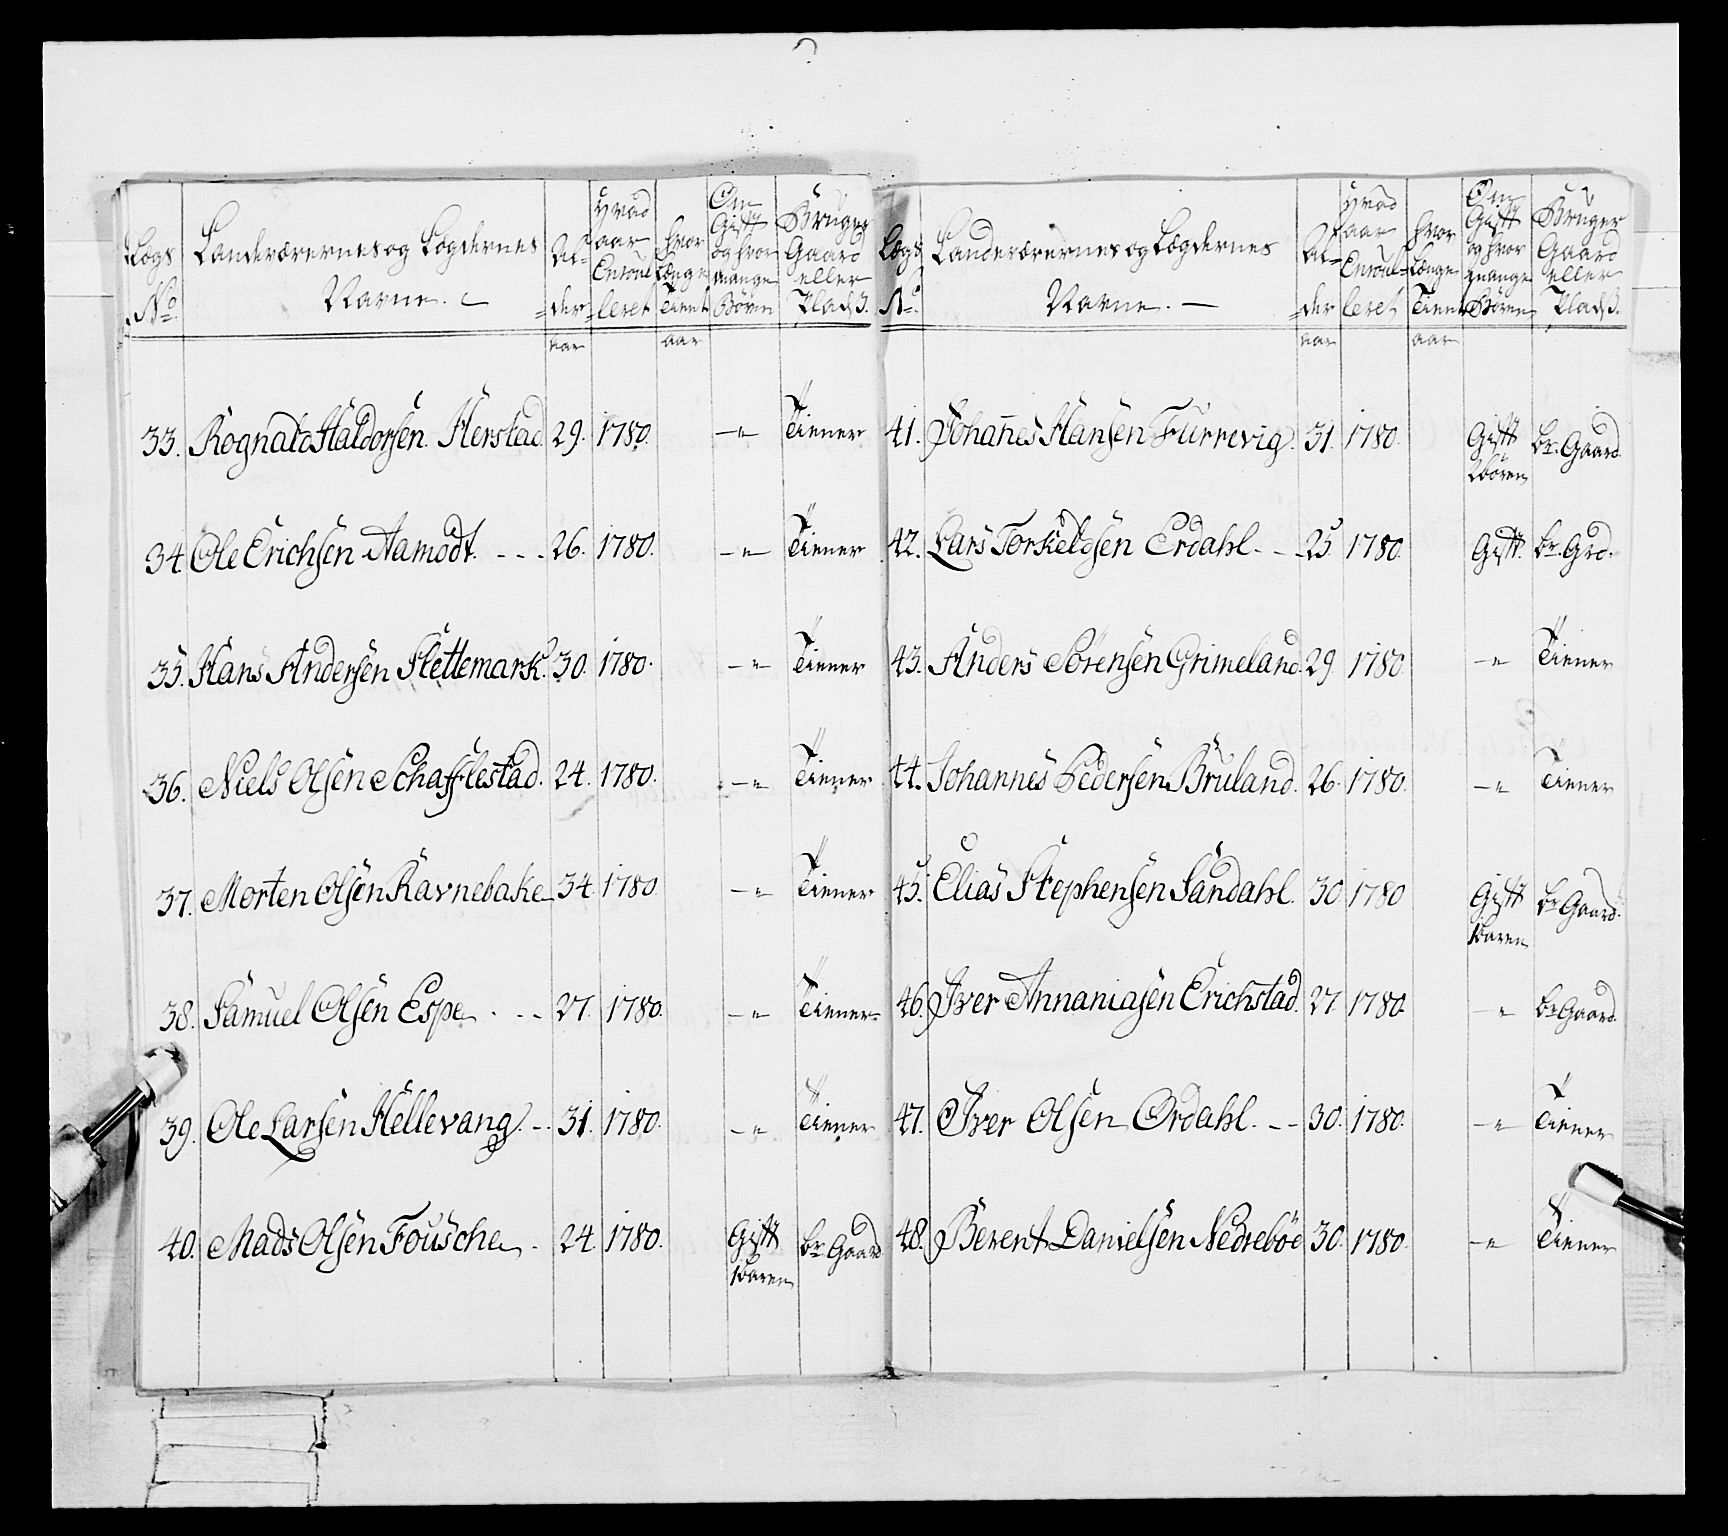 Lægs No. | Landværernes og Lægdernes Navne. | Al-der aar | Hvad aar Enroul-leret | Hvor Længe Tient aar | Om Gift og hvor mange Børen | Bruger Gaard eller Pladβ.
33. Rognald Haldorsen Herstad 29. 1780. -„- Tiener
34 Ole Erichsen Aamodt. - - - 26. 1780. -„- Tiener
35. Hans Andersen Slettemark. 30. 1780. -„ Tiener
36. Niels Olsen Schafflestad. 24. 1780. -„ Tiener
37. Morten Olsen Ravnebake 34. 1780 -„ Tiener
38. Samuel Olsen Espe . - - 27. 1780. -„ Tiener
39. Ole Larsen Hellevang. - 31. 1780. -„ Tiener
40. Mads Olsen Fousche . 24 1780. Gift br. Gaard
1 baren
Lægs No. | Landværernes og Lægdernes Navne. - | Al-der aar | Hvad aar Enroul-leret | Hvor Længe Tient aar | Om Gift og hvor mange Børen | Bruger Gaard eller Pladβ.
41. Johanes Hansen Furrevig. 31. 1780. Gift br. Gaard
2 børen
42. Lars Torkeldsen Erdahl. - - 25. 1780. Gift. br. Grd.
43. Anders Sørensen Grimeland. 29 1780. -„ Tiener
44. Johannes Pedersen Bruland. 26. 1780. -„ Tiener
45. Elias Stephensen Sandahl. 30 1780 Gift br Gaard.
1 baren
46. Iver Annaniasen Erichstad. 27. 1780. -„ br Gaard.
47. Iver Olsen Ordahl. - - 30. 1780. -„ Tiener
48. Berent Danielsen Nedrebøe 30. 1780. -„ Tiener